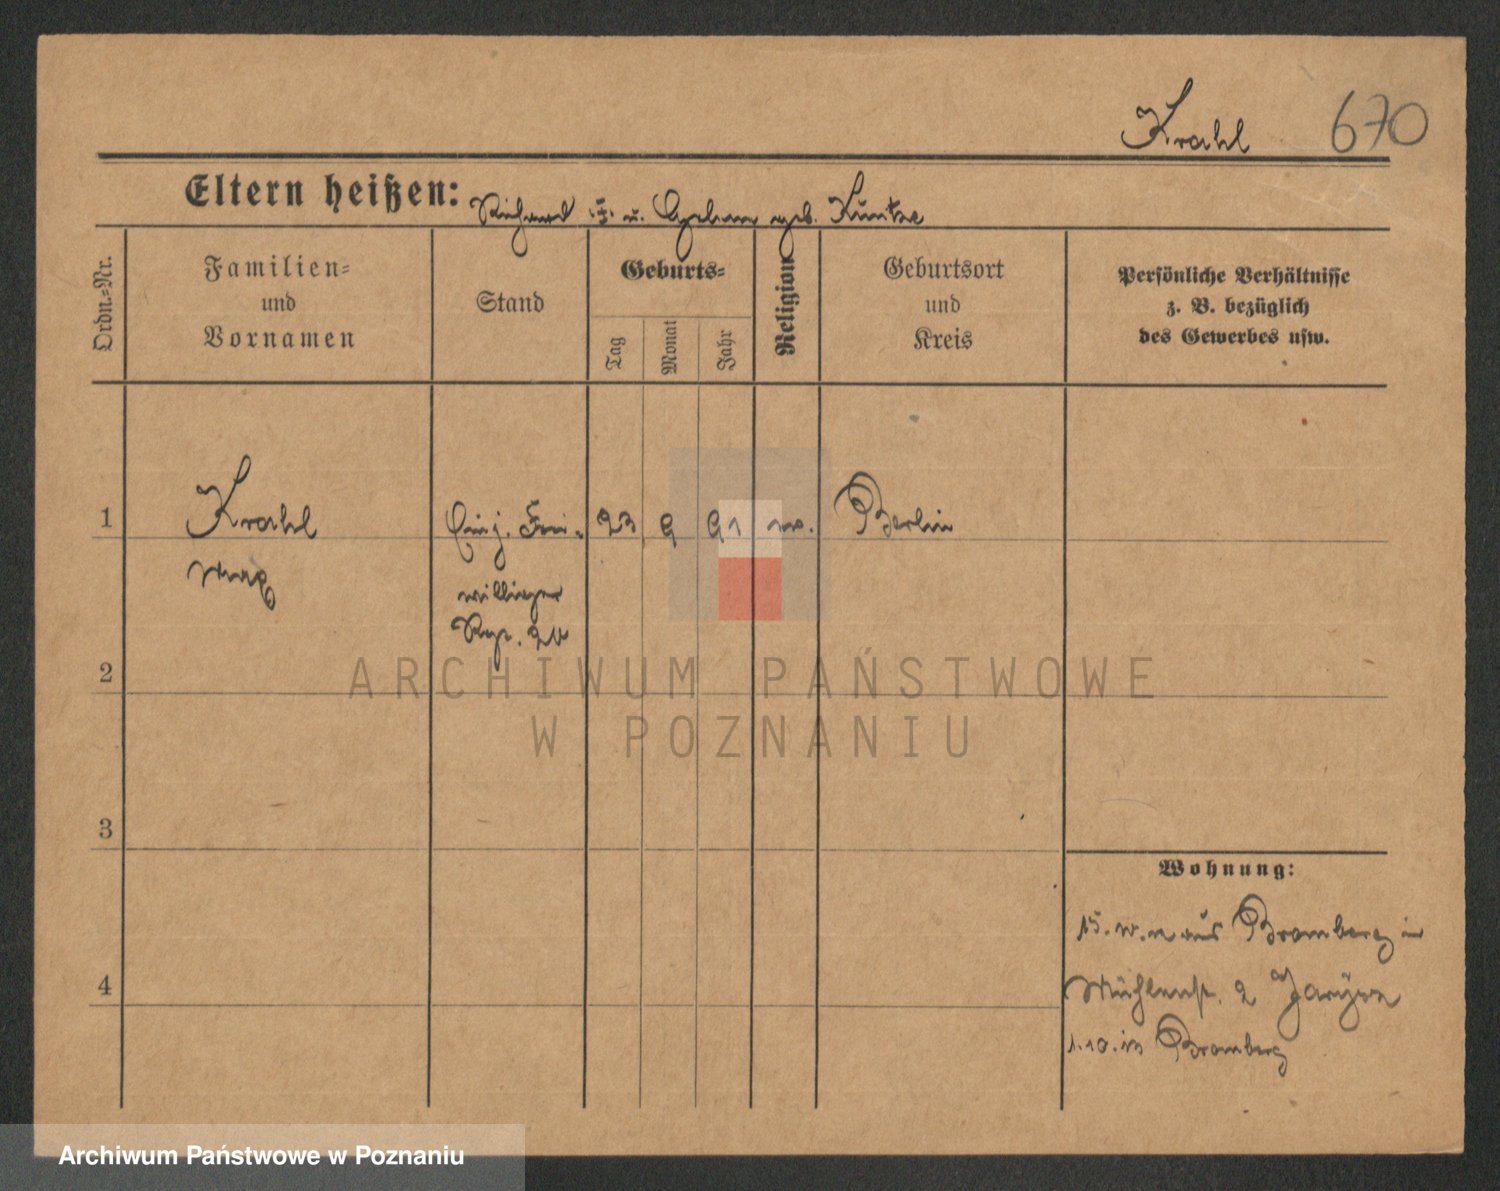 Krahl 670
Eltern heißen: Richard u. geb. Kuntze
Ordn.=Nr.
Familien=
und
Vornamen
Stand
Geburts=
Tag
Monat
Jahr
Religion
Geburtsort
und
Kreis
Persönliche Verhältnisse
z. B. bezüglich
des Gewerbes usw.
1 Krahl Einj. Frei- 23 9 91 Berlin
Max
williger
Reg.
2
3
4
Wohnung:
aus Bromberg in
Mühlenst. 2
1.10. in Bromberg
ARCHIWUM PAŃSTWOWE
W POZNANIU
Archiwum Państwowe w Poznaniu